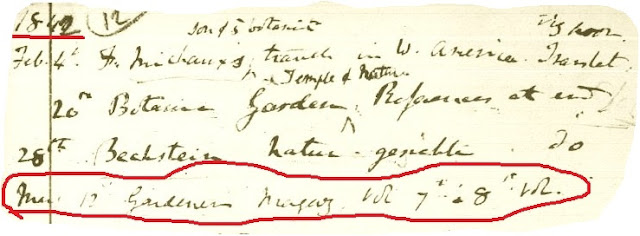 1842 (12) son of botanist V/S poor
Feb. 4th. F. Michaux's travels in W. America. Translat.
Temple of Nature
20th Botanic Garden References at end
28th Bechstein Natur-gesichte. do
Mar 12th Gardeners Magaz. Vol 7th & 8th Vol.